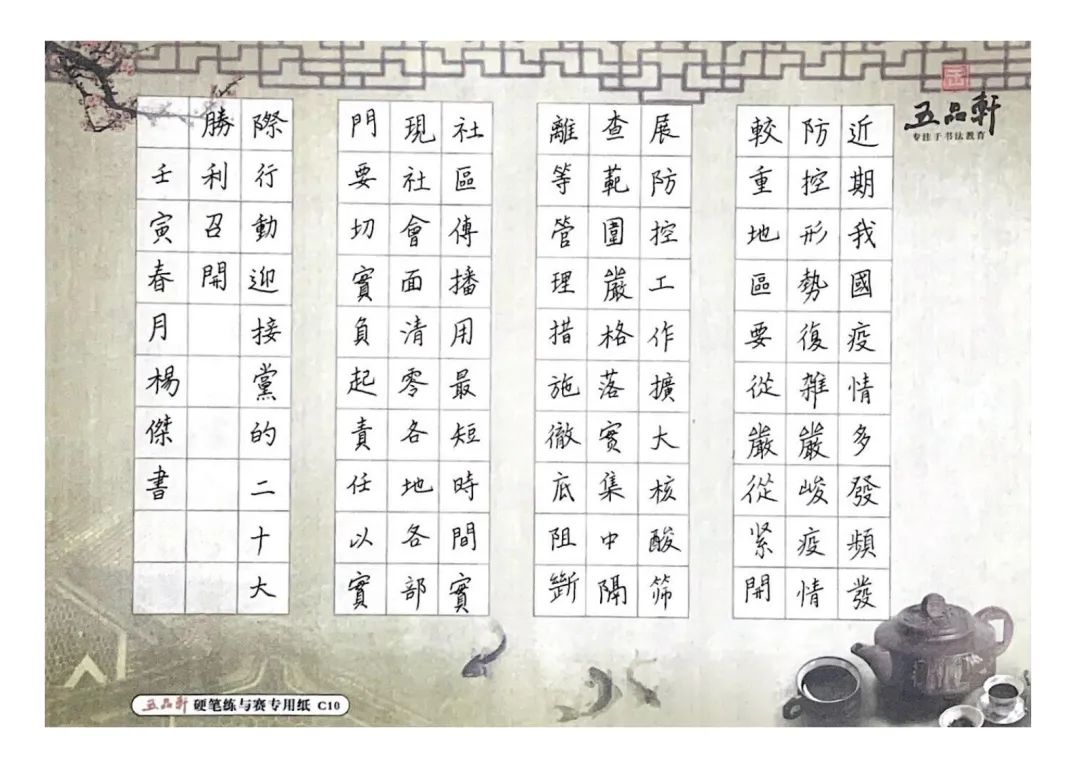 五品軒
专注于书法教育
近期我國疫情多發頻發
防控形勢復雜嚴峻疫情
較重地區要從嚴從紧開
展防控工作擴大核酸筛
查範圍嚴格落實集中隔
離等管理措施徹底阻斷
社區傳播用最短時間實
現社會面清零各地各部
門要切實負起責任以實
際行動迎接黨的二十大
勝利召開
壬寅春月楊傑書
五品軒 硬笔练与赛专用纸 C10